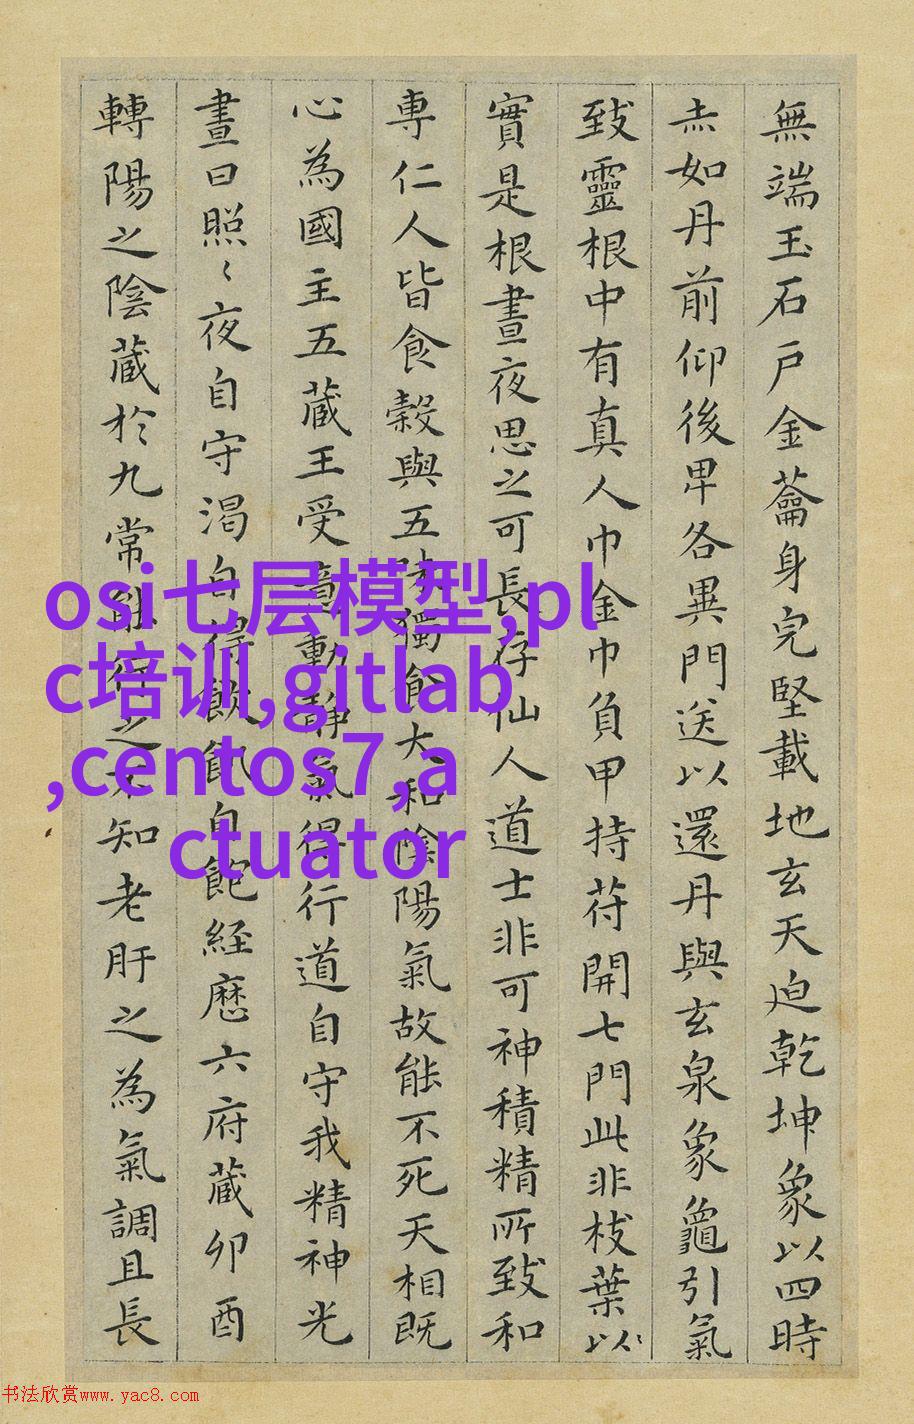 無端玉石戶金蘥身完堅載地玄天迫乾坤象以四時
赤如丹前仰後卑各異門送以還丹與玄泉象龜引氣
致靈根中有真人巾金巾負甲持苻開七門此非枝葉以
實是根晝夜思之可長存仙人道士非可神積精所致和
専仁人皆食穀與五味獨食大和陰陽氣故能不死天相既
心為國主五蔵王受意動静氣得行道自守我精神光
晝日照〻夜自守渴自得飲飢自飽経歷六府蔵卯酉
轉陽之陰蔵於九常能行之不知老肝之為氣調且長
osi七层模型,pl
c培训,gitlab
,centos7,a
ctuator
书法欣赏www.yac8.com